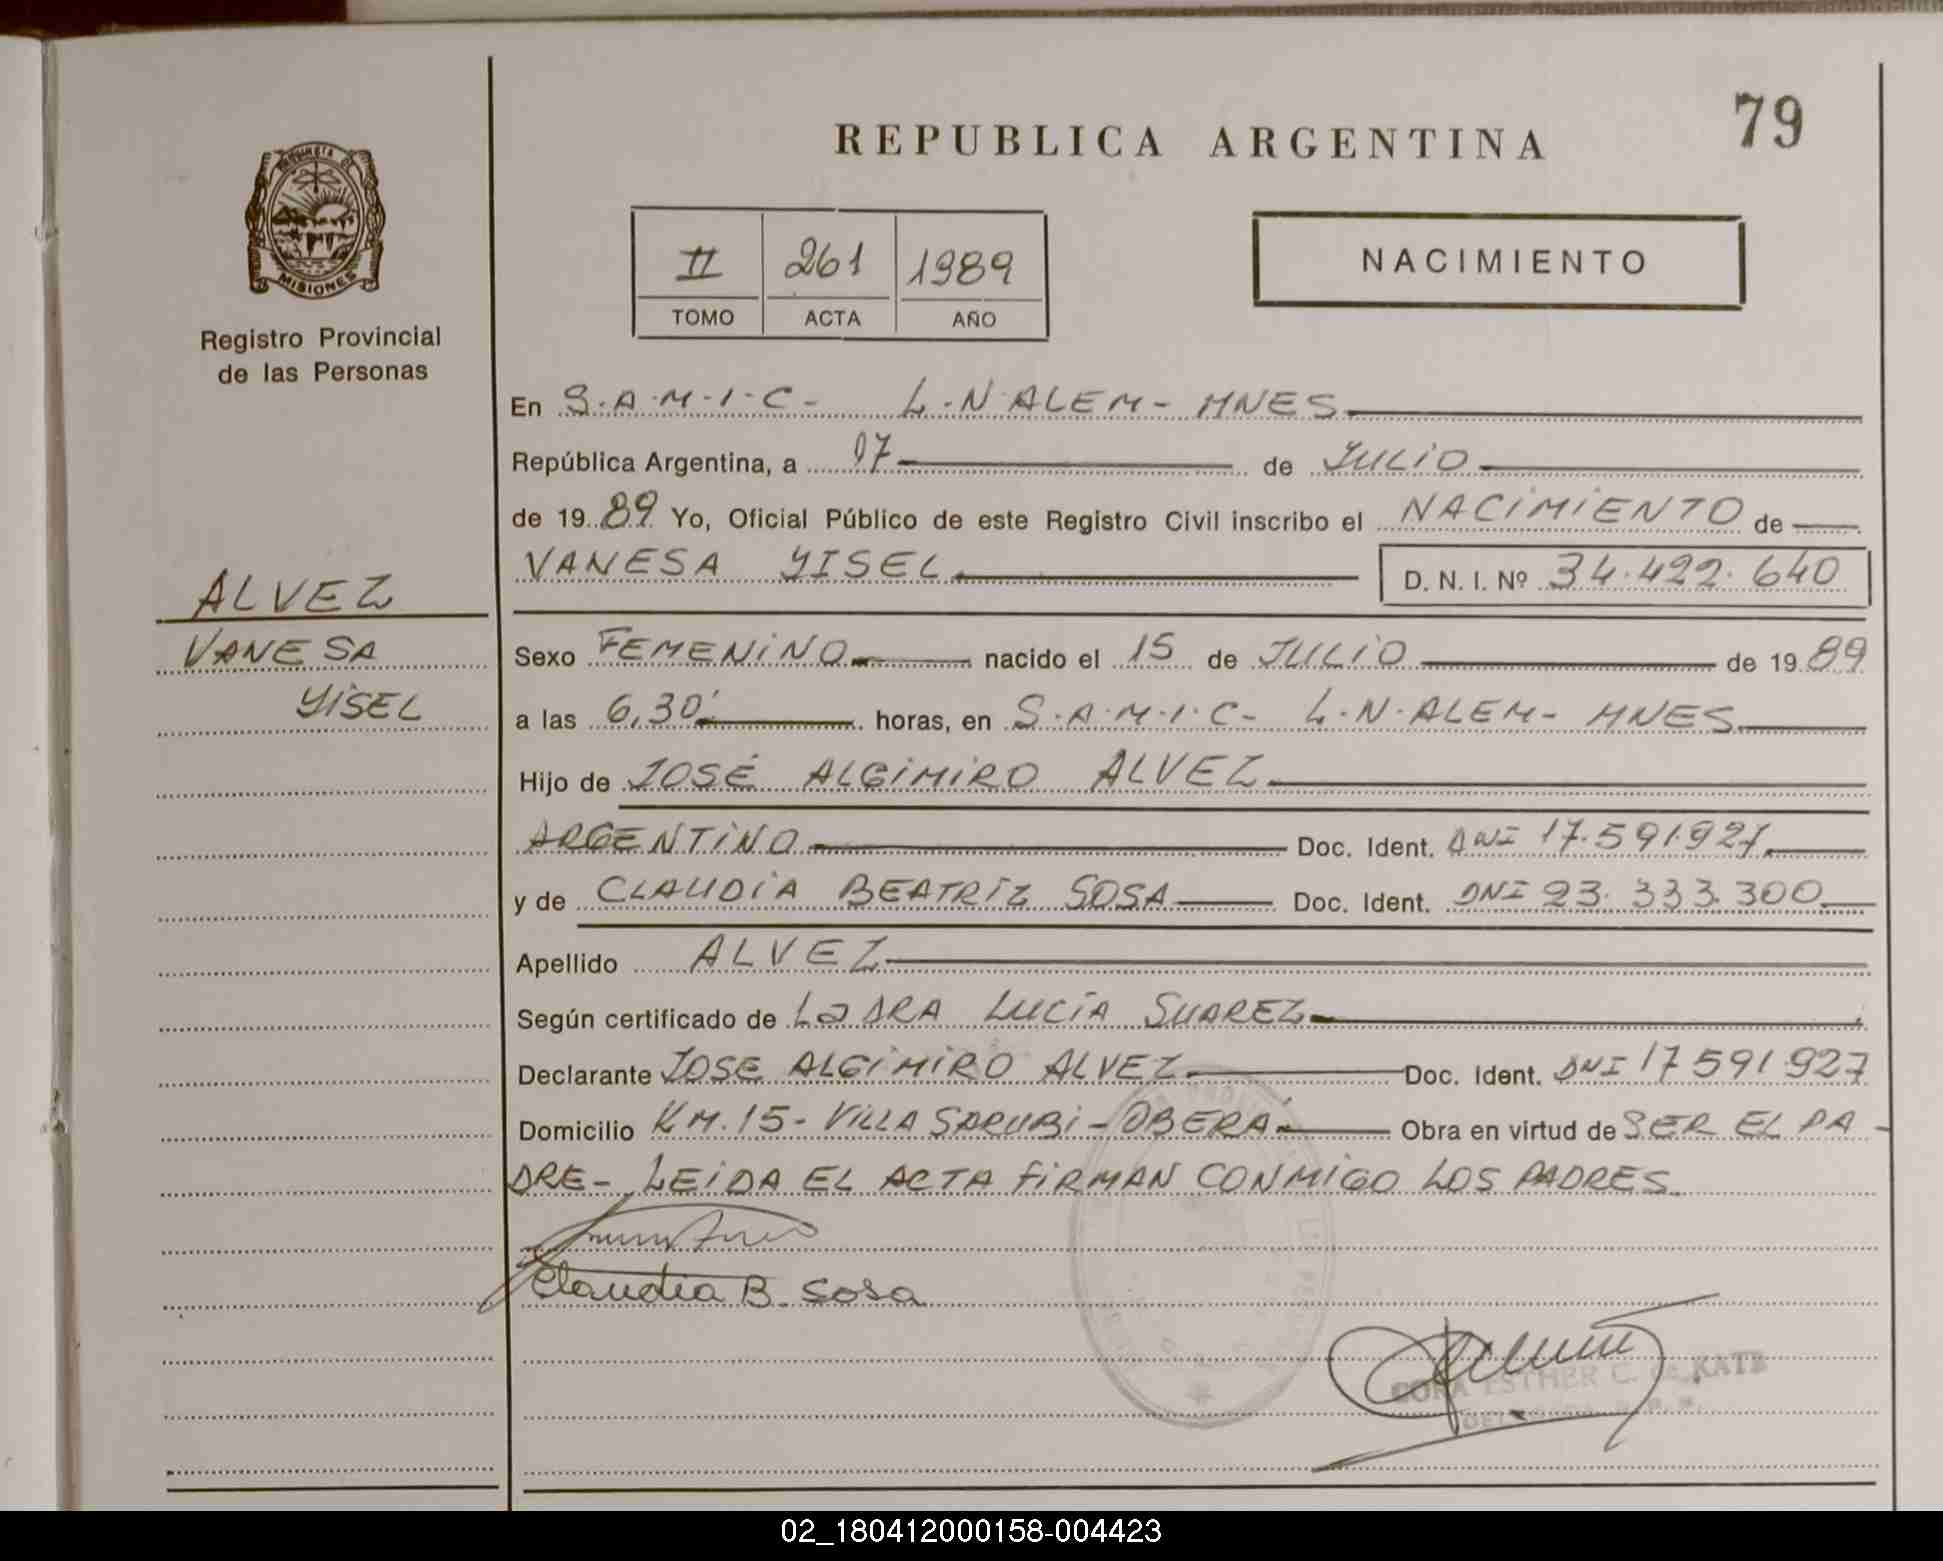 REPUBLICA ARGENTINA
79
PROVINCIA DE
MISIONES
Registro Provincial
de las Personas
II 261 1989
TOMO ACTA AÑO
NACIMIENTO
En S.A.M.I.C- L.N.ALEM- MNES
República Argentina, a 17 de JULIO
de 1989 Yo, Oficial Público de este Registro Civil inscribo el NACIMIENTO de
VANESA YISEL D. N. I. Nº 34.422.640
ALVEZ
VANESA
YISEL
Sexo FEMENINO nacido el 15 de JULIO de 1989
a las 6,30' horas, en S.A.M.I.C- L.N.ALEM- MNES
Hijo de JOSÉ ALGIMIRO ALVEZ
ARGENTINO Doc. Ident. DNI 17.591.927
y de CLAUDIA BEATRIZ SOSA Doc. Ident. DNI 23.333.300
Apellido ALVEZ
Según certificado de La DRA LUCÍA SUAREZ
Declarante JOSE ALGIMIRO ALVEZ Doc. Ident. DNI 17 591 927
Domicilio KM.15- VILLA SARUBI- OBERÁ Obra en virtud de SER EL PA-
DRE- LEIDA EL ACTA FIRMAN CONMIGO LOS PADRES
Claudia B. Sosa
ESTHER C. de KATZ
02_180412000158-004423